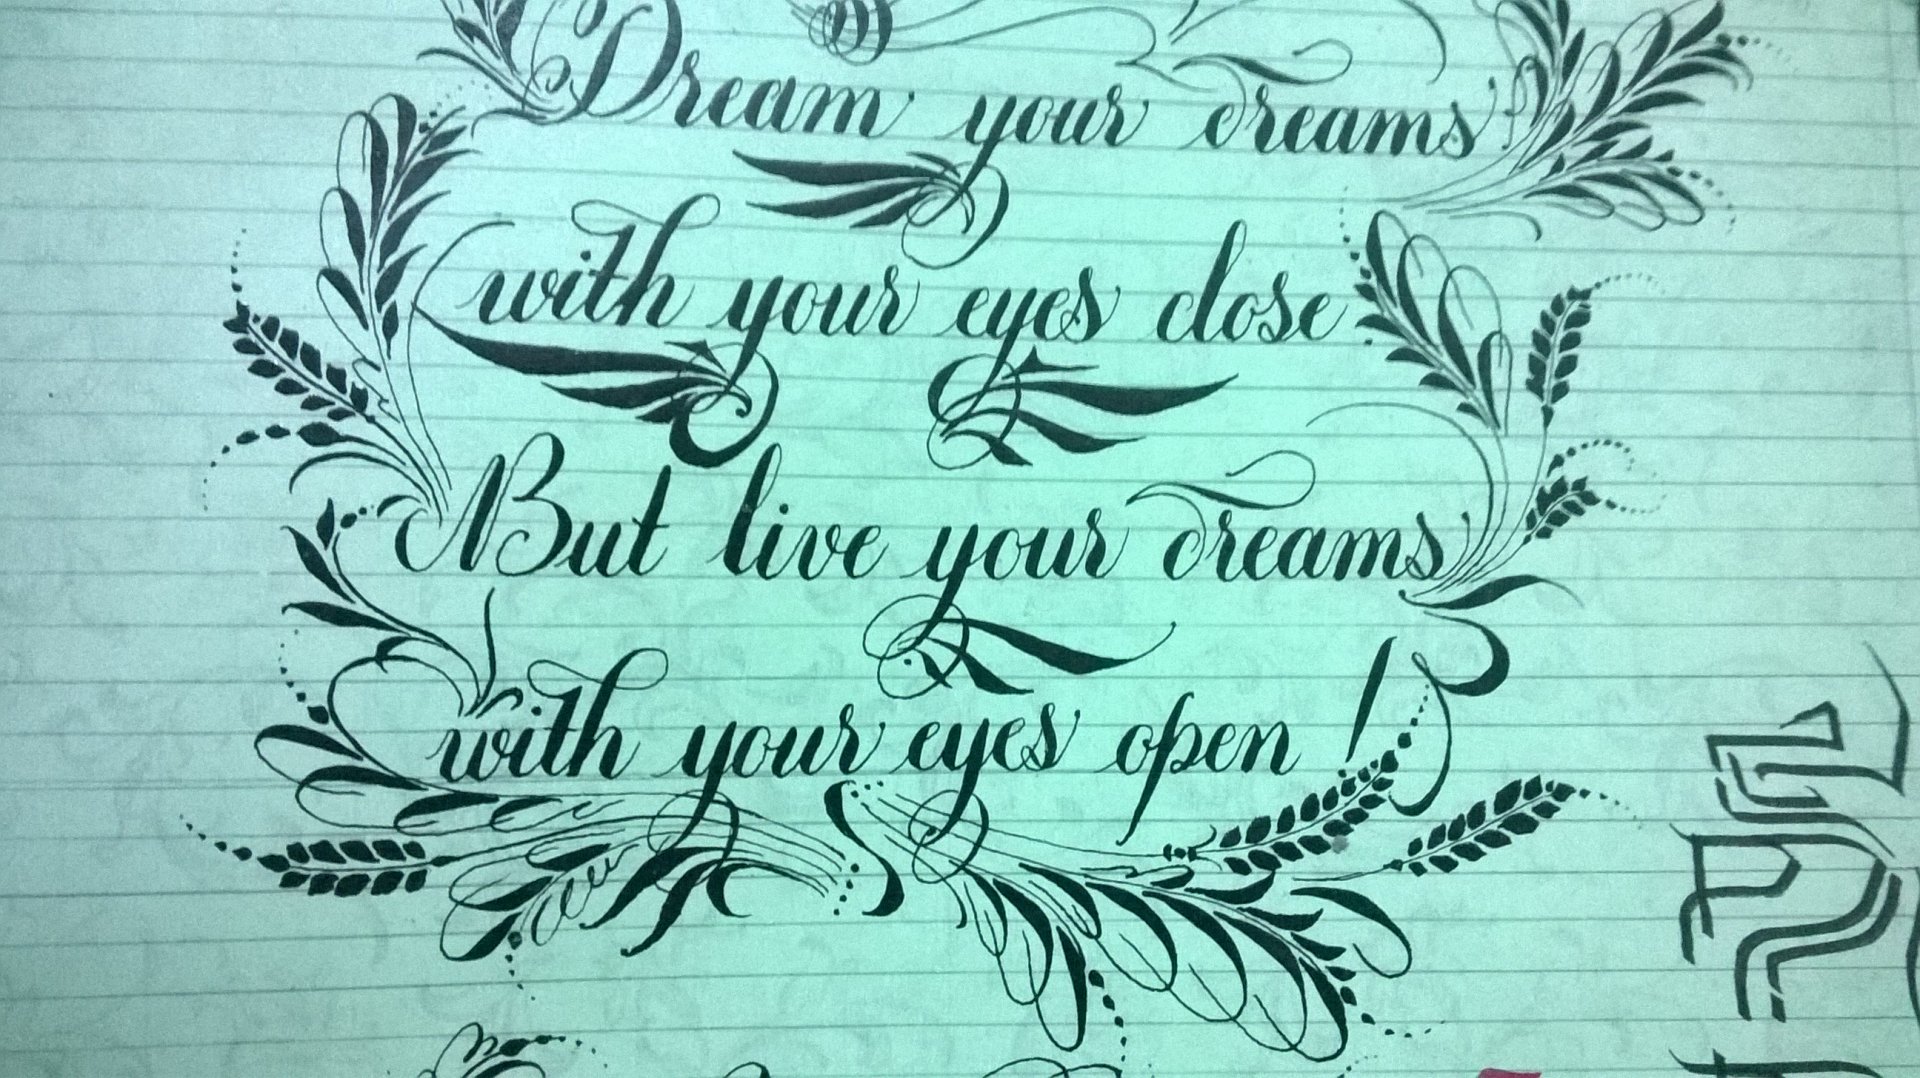 Dream your dreams
with your eyes close
But live your dreams
with your eyes open !